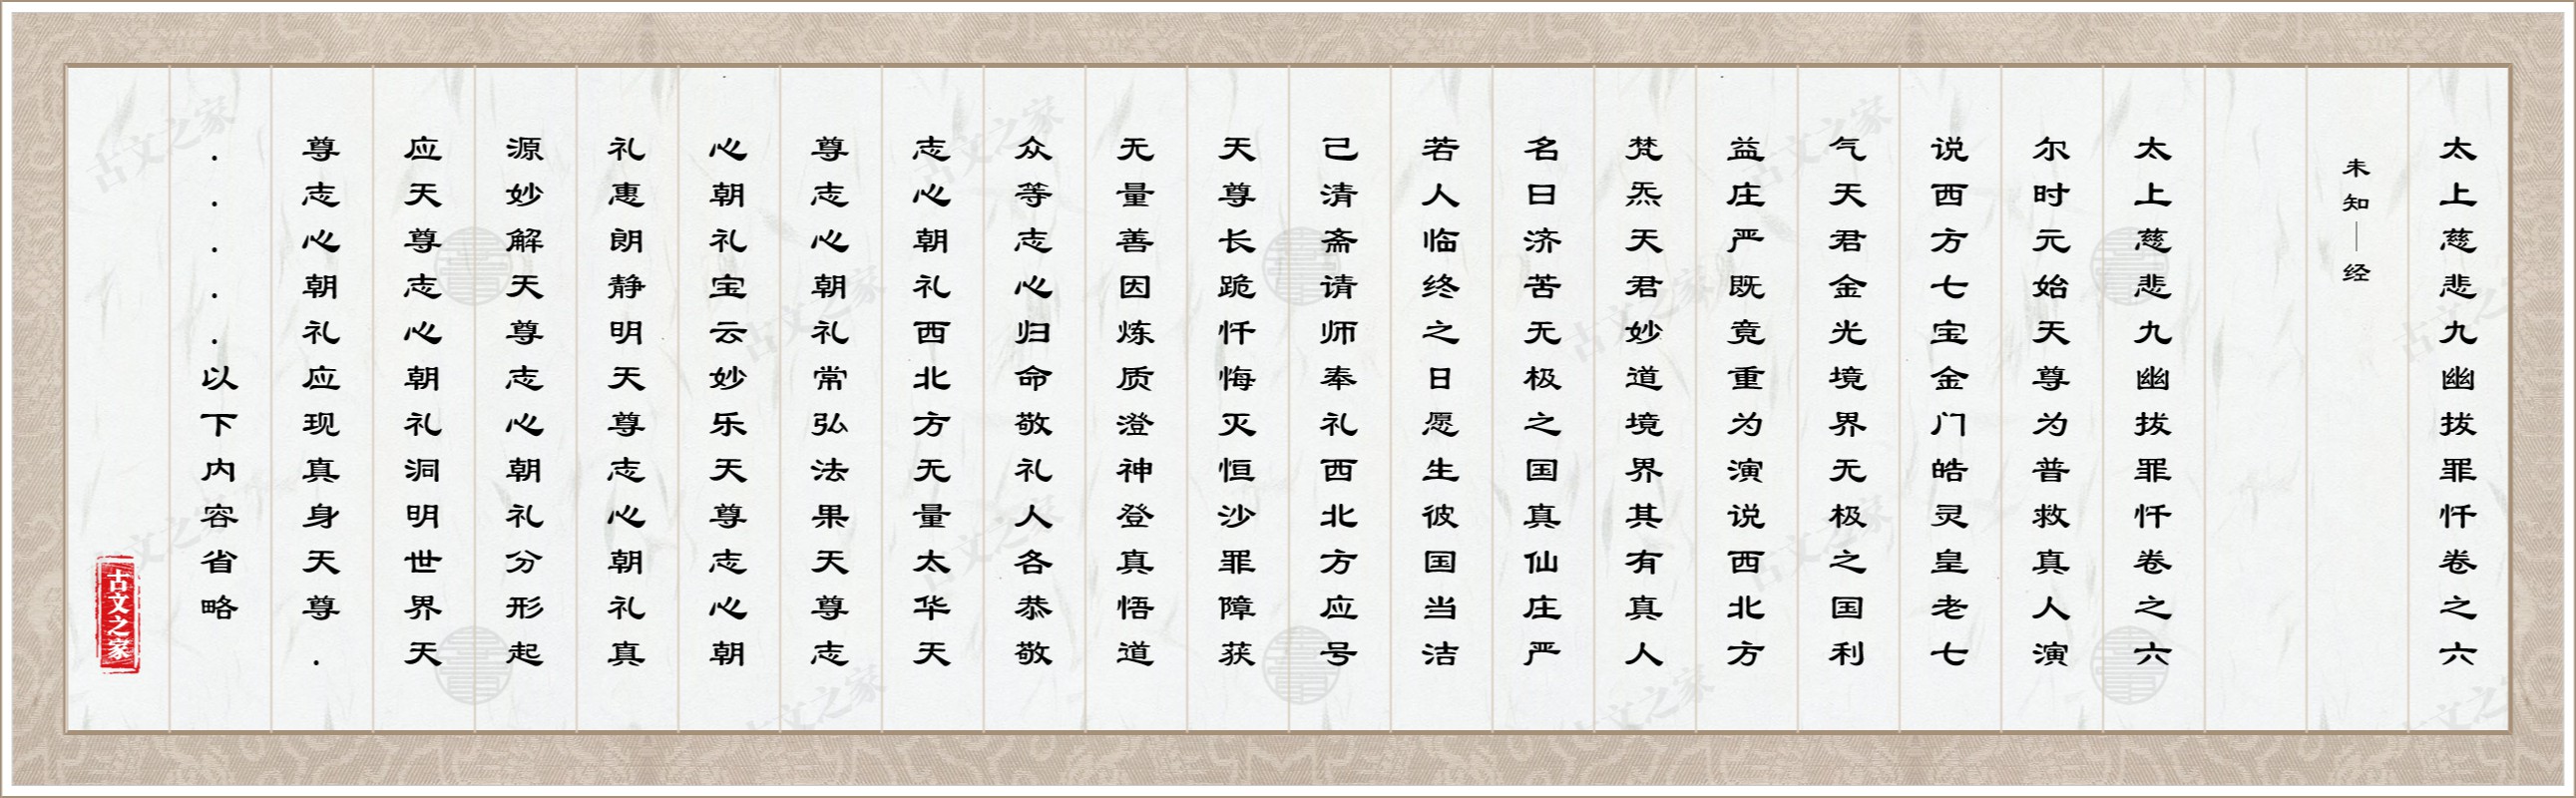 太上慈悲九幽拔罪忏卷之六
未知｜经
太上慈悲九幽拔罪忏卷之六
尔时元始天尊为普救真人演
说西方七宝金门皓灵皇老七
气天君金光境界无极之国利
益庄严既竟重为演说西北方
梵炁天君妙道境界其有真人
名曰济苦无极之国真仙庄严
若人临终之日愿生彼国当洁
己清斋请师奉礼西北方应号
天尊长跪忏悔灭恒沙罪障获
无量善因炼质澄神登真悟道
众等志心归命敬礼人各恭敬
志心朝礼西北方无量太华天
尊志心朝礼常弘法果天尊志
心朝礼宝云妙乐天尊志心朝
礼惠朗静明天尊志心朝礼真
源妙解天尊志心朝礼分形起
应天尊志心朝礼洞明世界天
尊志心朝礼应现真身天尊.
.....以下内容省略
古文之家